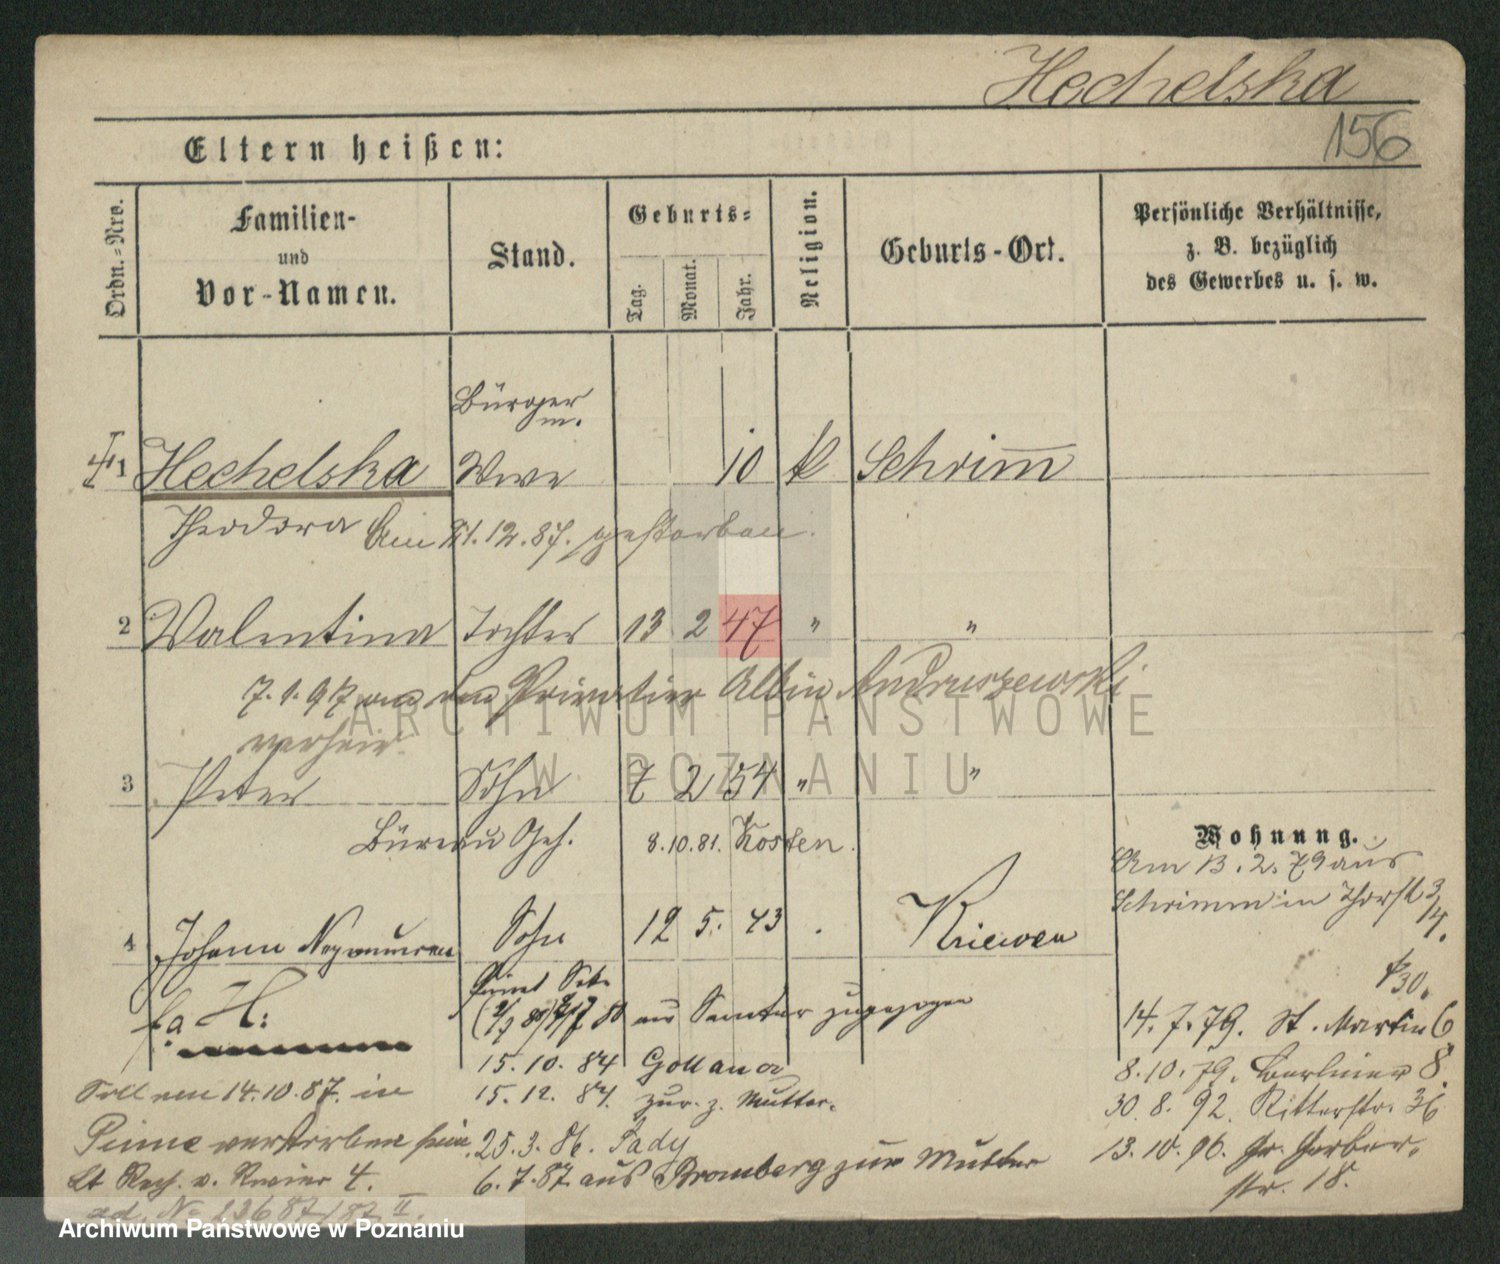 Hechelska
156
Eltern heißen:
Ordn.-Nro.
Familien-
und
Vor-Namen.
Stand.
Geburts-
Tag.
Monat.
Jahr.
Religion.
Geburts-Ort.
Persönliche Verhältnisse,
z. B. bezüglich
des Gewerbes u. s. w.
Bürger
m.
1 Hechelska Wwe 10 k Schrim̅
Theodora Am 21.12.87. gestorben.
2 Valentina Tochter 13 2 47 " "
7.1.97 an den Privatier Albin Andruszewski
verheir.
ARCHIWUM PAŃSTWOWE
W POZNANIU
3 Peter Sohn 7 2 54 " "
Büreau Geh. 8.10.81. Kosten.
Wohnung.
Am 13.2.79 aus
Schrimm in Thorstr 3/4.
4 Johann Nepomucen Sohn 12 5. 43 . Kriewen
fa H:
aus Samter zugezogen
14.7.79. St. Martin 6
15.10.84 Gollancz
8.10.79. Berliner 8.
Soll am 14.10.87. in
15.12.84. zur. z. Mutter.
30.8.92. Ritterstr. 36
Pinne verstorben sein.
25.3.86.
13.10.96. Gr. Gerber-
str. 18.
Lt Rech. v. Revier 4.
6.7.87. aus Bromberg zur Mutter
Archiwum Państwowe w Poznaniu